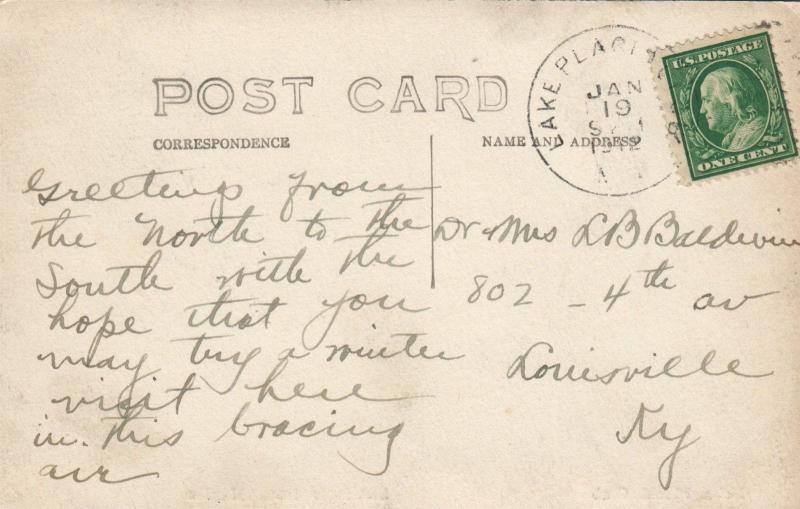 POST CARD
CORRESPONDENCE
NAME AND ADDRESS
LAKE PLACID
JAN
19
1912
U.S. POSTAGE
ONE CENT
Greetings from
the North to the
South with the
hope that you
may try a winter
visit here
in this bracing
air
Dr & Mrs L B Baldwin
802 - 4th av
Louisville
Ky